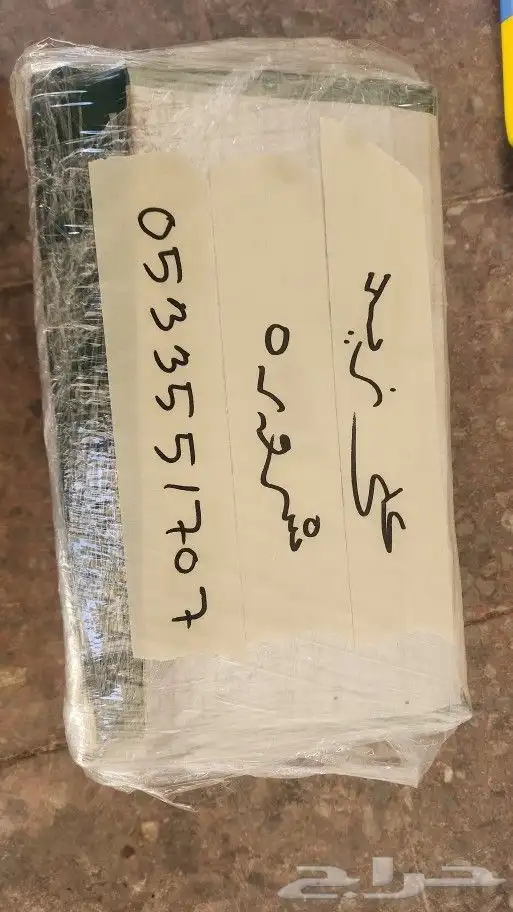 علي زيد
شروره
0533551707
حراج